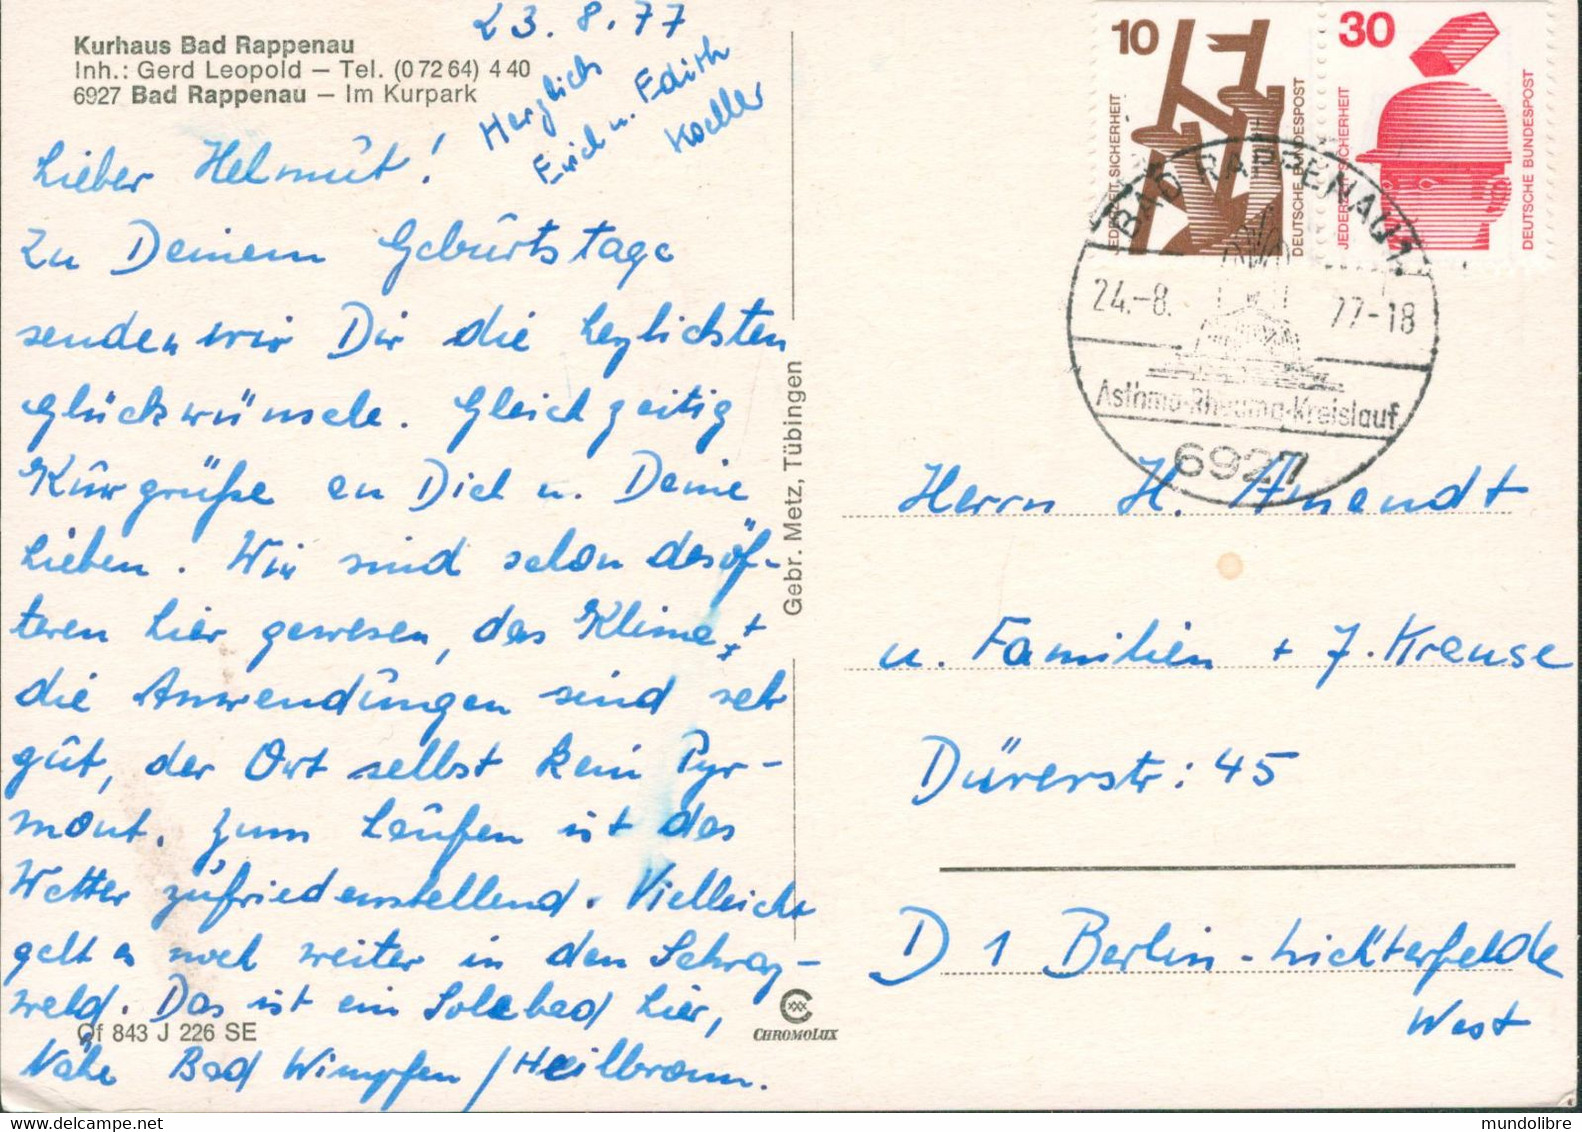 Kurhaus Bad Rappenau
Inh.: Gerd Leopold – Tel. (0 72 64) 4 40
6927 Bad Rappenau – Im Kurpark
23.8.77
Herzlich
Erich u. Edith
Koeller
Lieber Helmut!
Zu Deinem Geburtstage
senden wir Dir die herzlichsten
Glückwünsche. Gleichzeitig
Kurgrüße an Dich u. Deine
Lieben. Wir sind schon desöf-
teren hier gewesen, das Klima +
die Anwendungen sind sehr
gut, der Ort selbst kein Pyr-
mont. Zum Laufen ist das
Wetter zufriedenstellend. Vielleicht
geht es noch weiter in den Schwarz-
wald. Das ist ein Solebad hier,
Nähe Bad Wimpfen / Heilbronn.
Of 843 J 226 SE
Gebr. Metz, Tübingen
CHROMOLUX
10
JEDERZEIT SICHERHEIT
DEUTSCHE BUNDESPOST
30
JEDERZEIT SICHERHEIT
DEUTSCHE BUNDESPOST
BAD RAPPENAU 1
24.-8. 77-18
Asthma-Rheuma-Kreislauf
6927
Herrn H. Amendt
u. Familien + J. Krause
Dürerstr: 45
D 1 Berlin-Lichterfelde
West
mundolibre